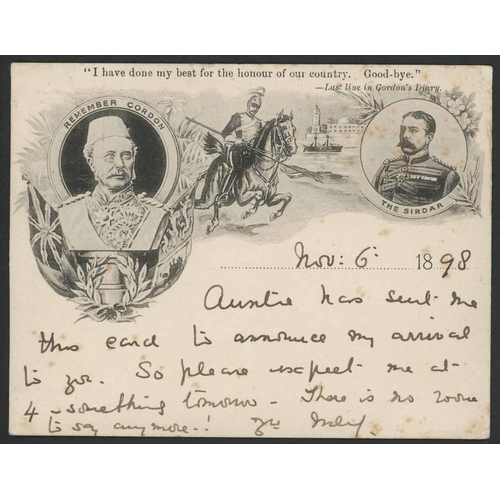 "I have done my best for the honour of our country. Good-bye."
—Last line in Gordon's Diary.
REMEMBER GORDON
THE SIRDAR
Nov: 6: 1898
Auntie has sent me
this card to announce my arrival
to you. So please expect me at
4 - something tomorrow - There is no room
to say anymore-!